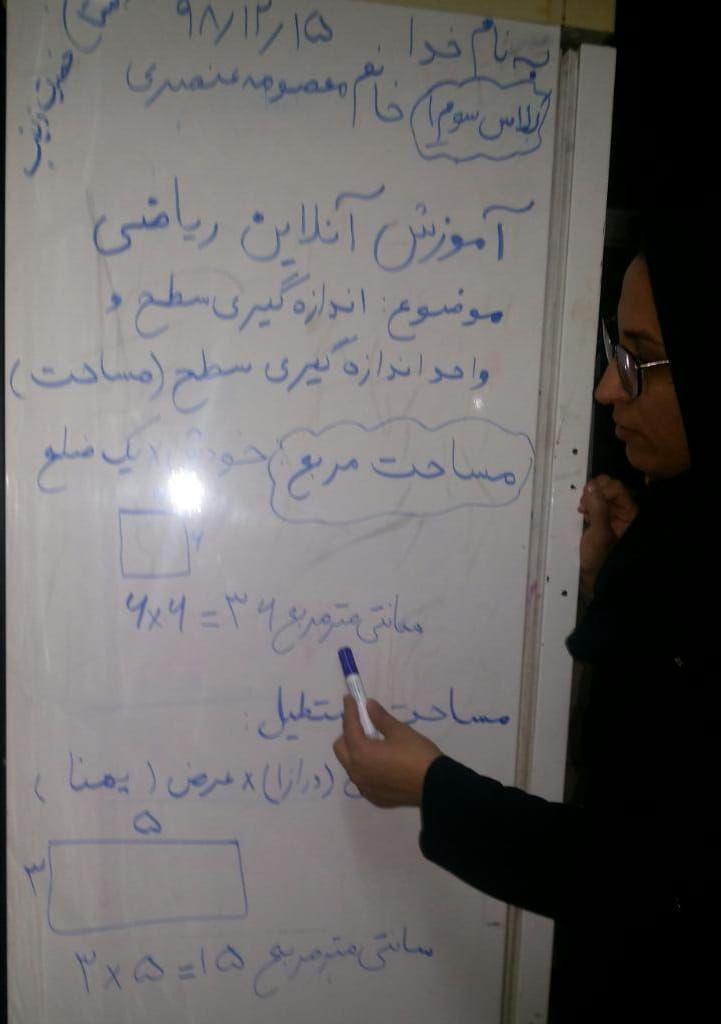 به نام خدا
۹۸/۱۲/۱۵
کلاس سوم ۱
خانم معصومه عنصری
حضرت زینب
آموزش آنلاین ریاضی
موضوع: اندازه گیری سطح و
واحد اندازه گیری سطح (مساحت)
مساحت مربع: خودش × یک ضلع
۶×۶ = ۳۶ سانتی متر مربع
مساحت مستطیل:
(درازا) × عرض (پهنا)
۵
۳
۳ × ۵ = ۱۵ سانتی متر مربع